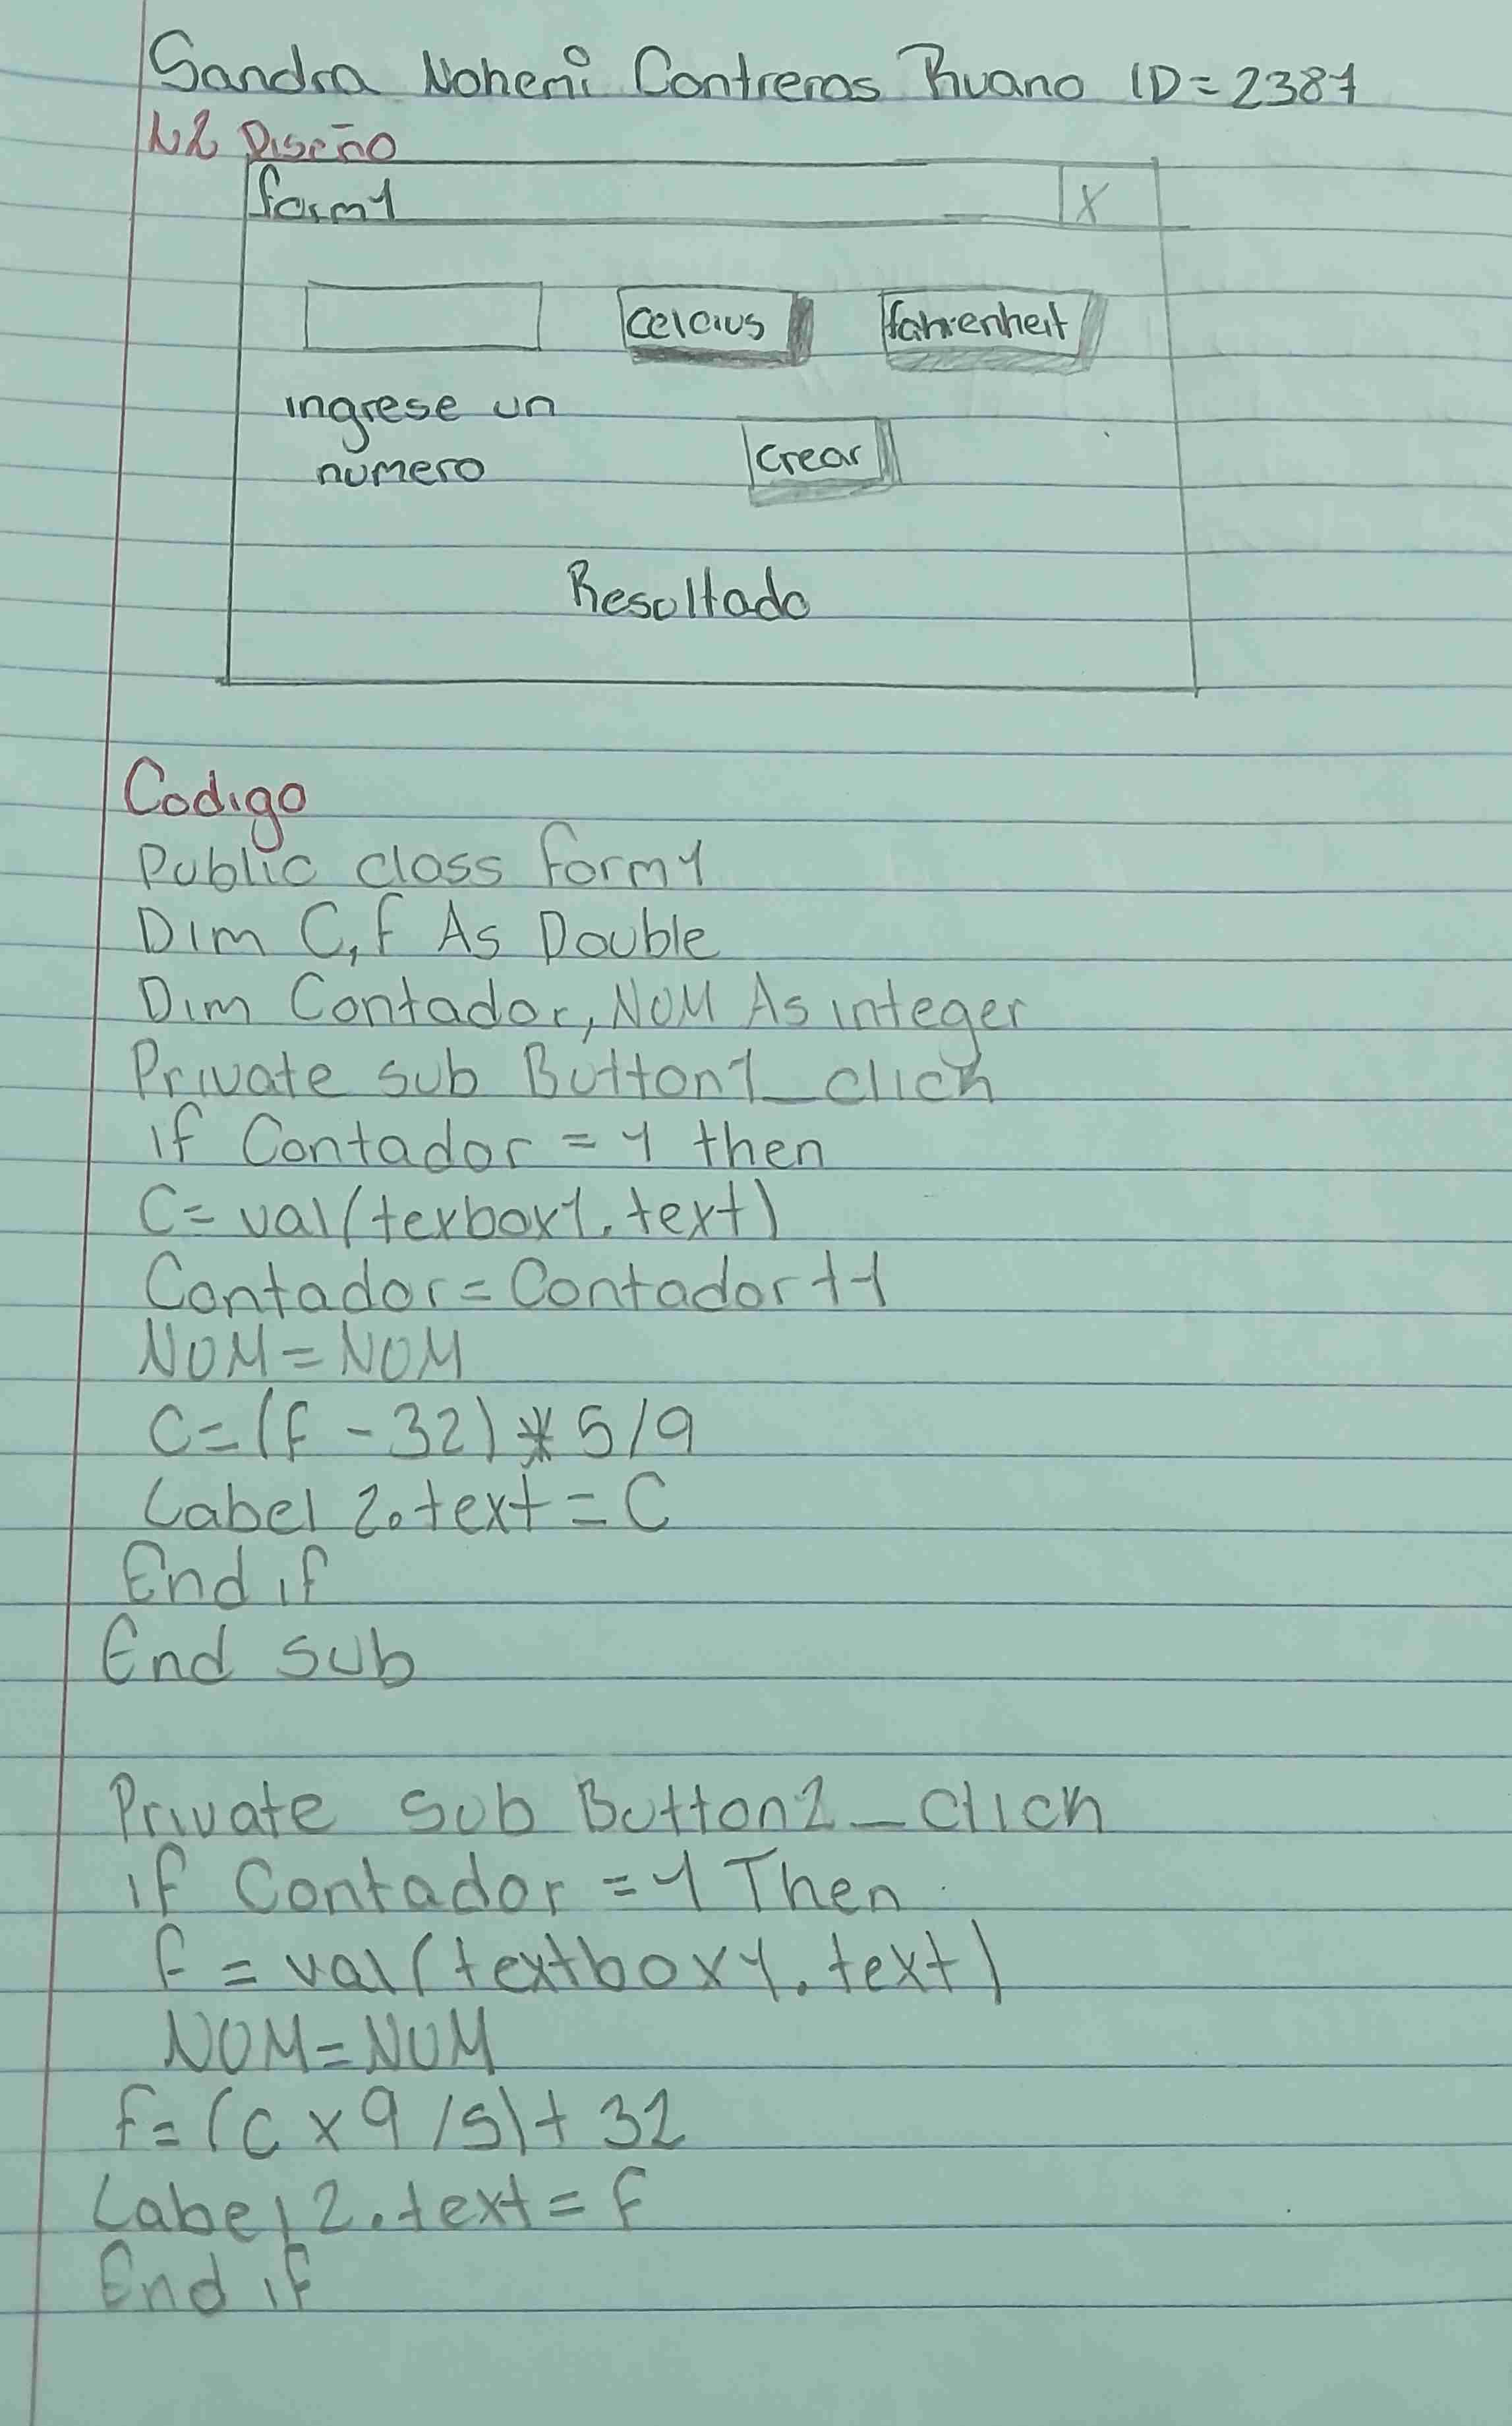 Sandra Nohemi Contreras Ruano ID=2387
N2 Diseño
form1 X
celcius fahrenheit
ingrese un
numero
crear
Resultado
Codigo
Public class form1
Dim C,f As Double
Dim Contador, NUM As integer
Private sub Button1_click
if Contador = 1 then
C= val(texbox1.text)
Contador=Contador+1
NUM=NUM
C=(f - 32) * 5/9
Label 2.text = C
End if
End sub
Private sub Button2_click
if Contador = 1 Then
f = val(textbox1.text)
NUM=NUM
f=(c x 9/5)+ 32
Label2.text = f
End if